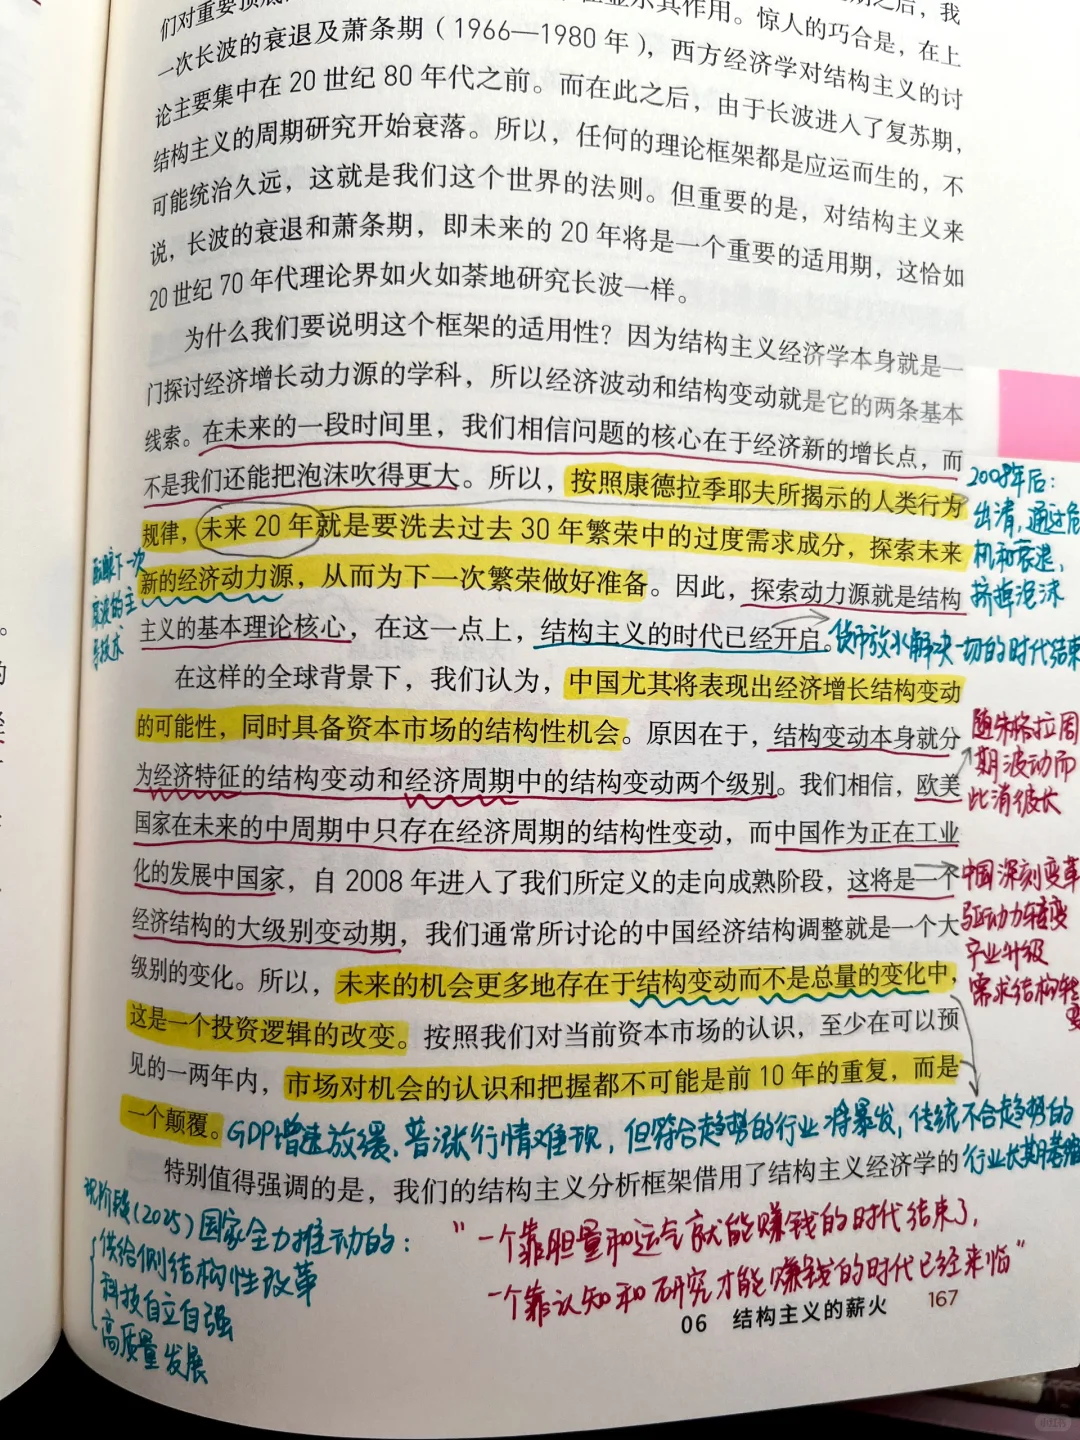 们对重要
显示其作用。惊人的巧合是，在上
之后，我
一次长波的衰退及萧条期（1966—1980年），西方经济学对结构主义的讨
论主要集中在20世纪80年代之前。而在此之后，由于长波进入了复苏期，
结构主义的周期研究开始衰落。所以，任何的理论框架都是应运而生的，不
可能统治久远，这就是我们这个世界的法则。但重要的是，对结构主义来
说，长波的衰退和萧条期，即未来的20年将是一个重要的适用期，这恰如
20世纪70年代理论界如火如荼地研究长波一样。
为什么我们要说明这个框架的适用性？因为结构主义经济学本身就是一
门探讨经济增长动力源的学科，所以经济波动和结构变动就是它的两条基本
线索。在未来的一段时间里，我们相信问题的核心在于经济新的增长点，而
不是我们还能把泡沫吹得更大。所以，按照康德拉季耶夫所揭示的人类行为
规律，未来20年就是要洗去过去30年繁荣中的过度需求成分，探索未来
新的经济动力源，从而为下一次繁荣做好准备。因此，探索动力源就是结构
主义的基本理论核心，在这一点上，结构主义的时代已经开启。
2008年后：
出清，通过危
机和衰退，
挤掉泡沫
货币放水解决一切的时代结束
下一次
的主
导技术
在这样的全球背景下，我们认为，中国尤其将表现出经济增长结构变动
的可能性，同时具备资本市场的结构性机会。原因在于，结构变动本身就分
为经济特征的结构变动和经济周期中的结构变动两个级别。我们相信，欧美
国家在未来的中周期中只存在经济周期的结构性变动，而中国作为正在工业
化的发展中国家，自2008年进入了我们所定义的走向成熟阶段，这将是一个
经济结构的大级别变动期，我们通常所讨论的中国经济结构调整就是一个大
级别的变化。所以，未来的机会更多地存在于结构变动而不是总量的变化中，
这是一个投资逻辑的改变。按照我们对当前资本市场的认识，至少在可以预
见的一两年内，市场对机会的认识和把握都不可能是前10年的重复，而是
一个颠覆。
随朱格拉周
期波动而
此消彼长
中国深刻变革
驱动力转变
产业升级
需求结构转
变
GDP增速放缓、普涨行情难现，但符合趋势的行业将暴发，传统不合趋势的
行业长期萎缩
特别值得强调的是，我们的结构主义分析框架借用了结构主义经济学的
现阶段（2025）国家全力推动的：
供给侧结构性改革
科技自立自强
高质量发展
"一个靠胆量和运气就能赚钱的时代结束了，
一个靠认知和研究才能赚钱的时代已经来临"
06 结构主义的薪火 167